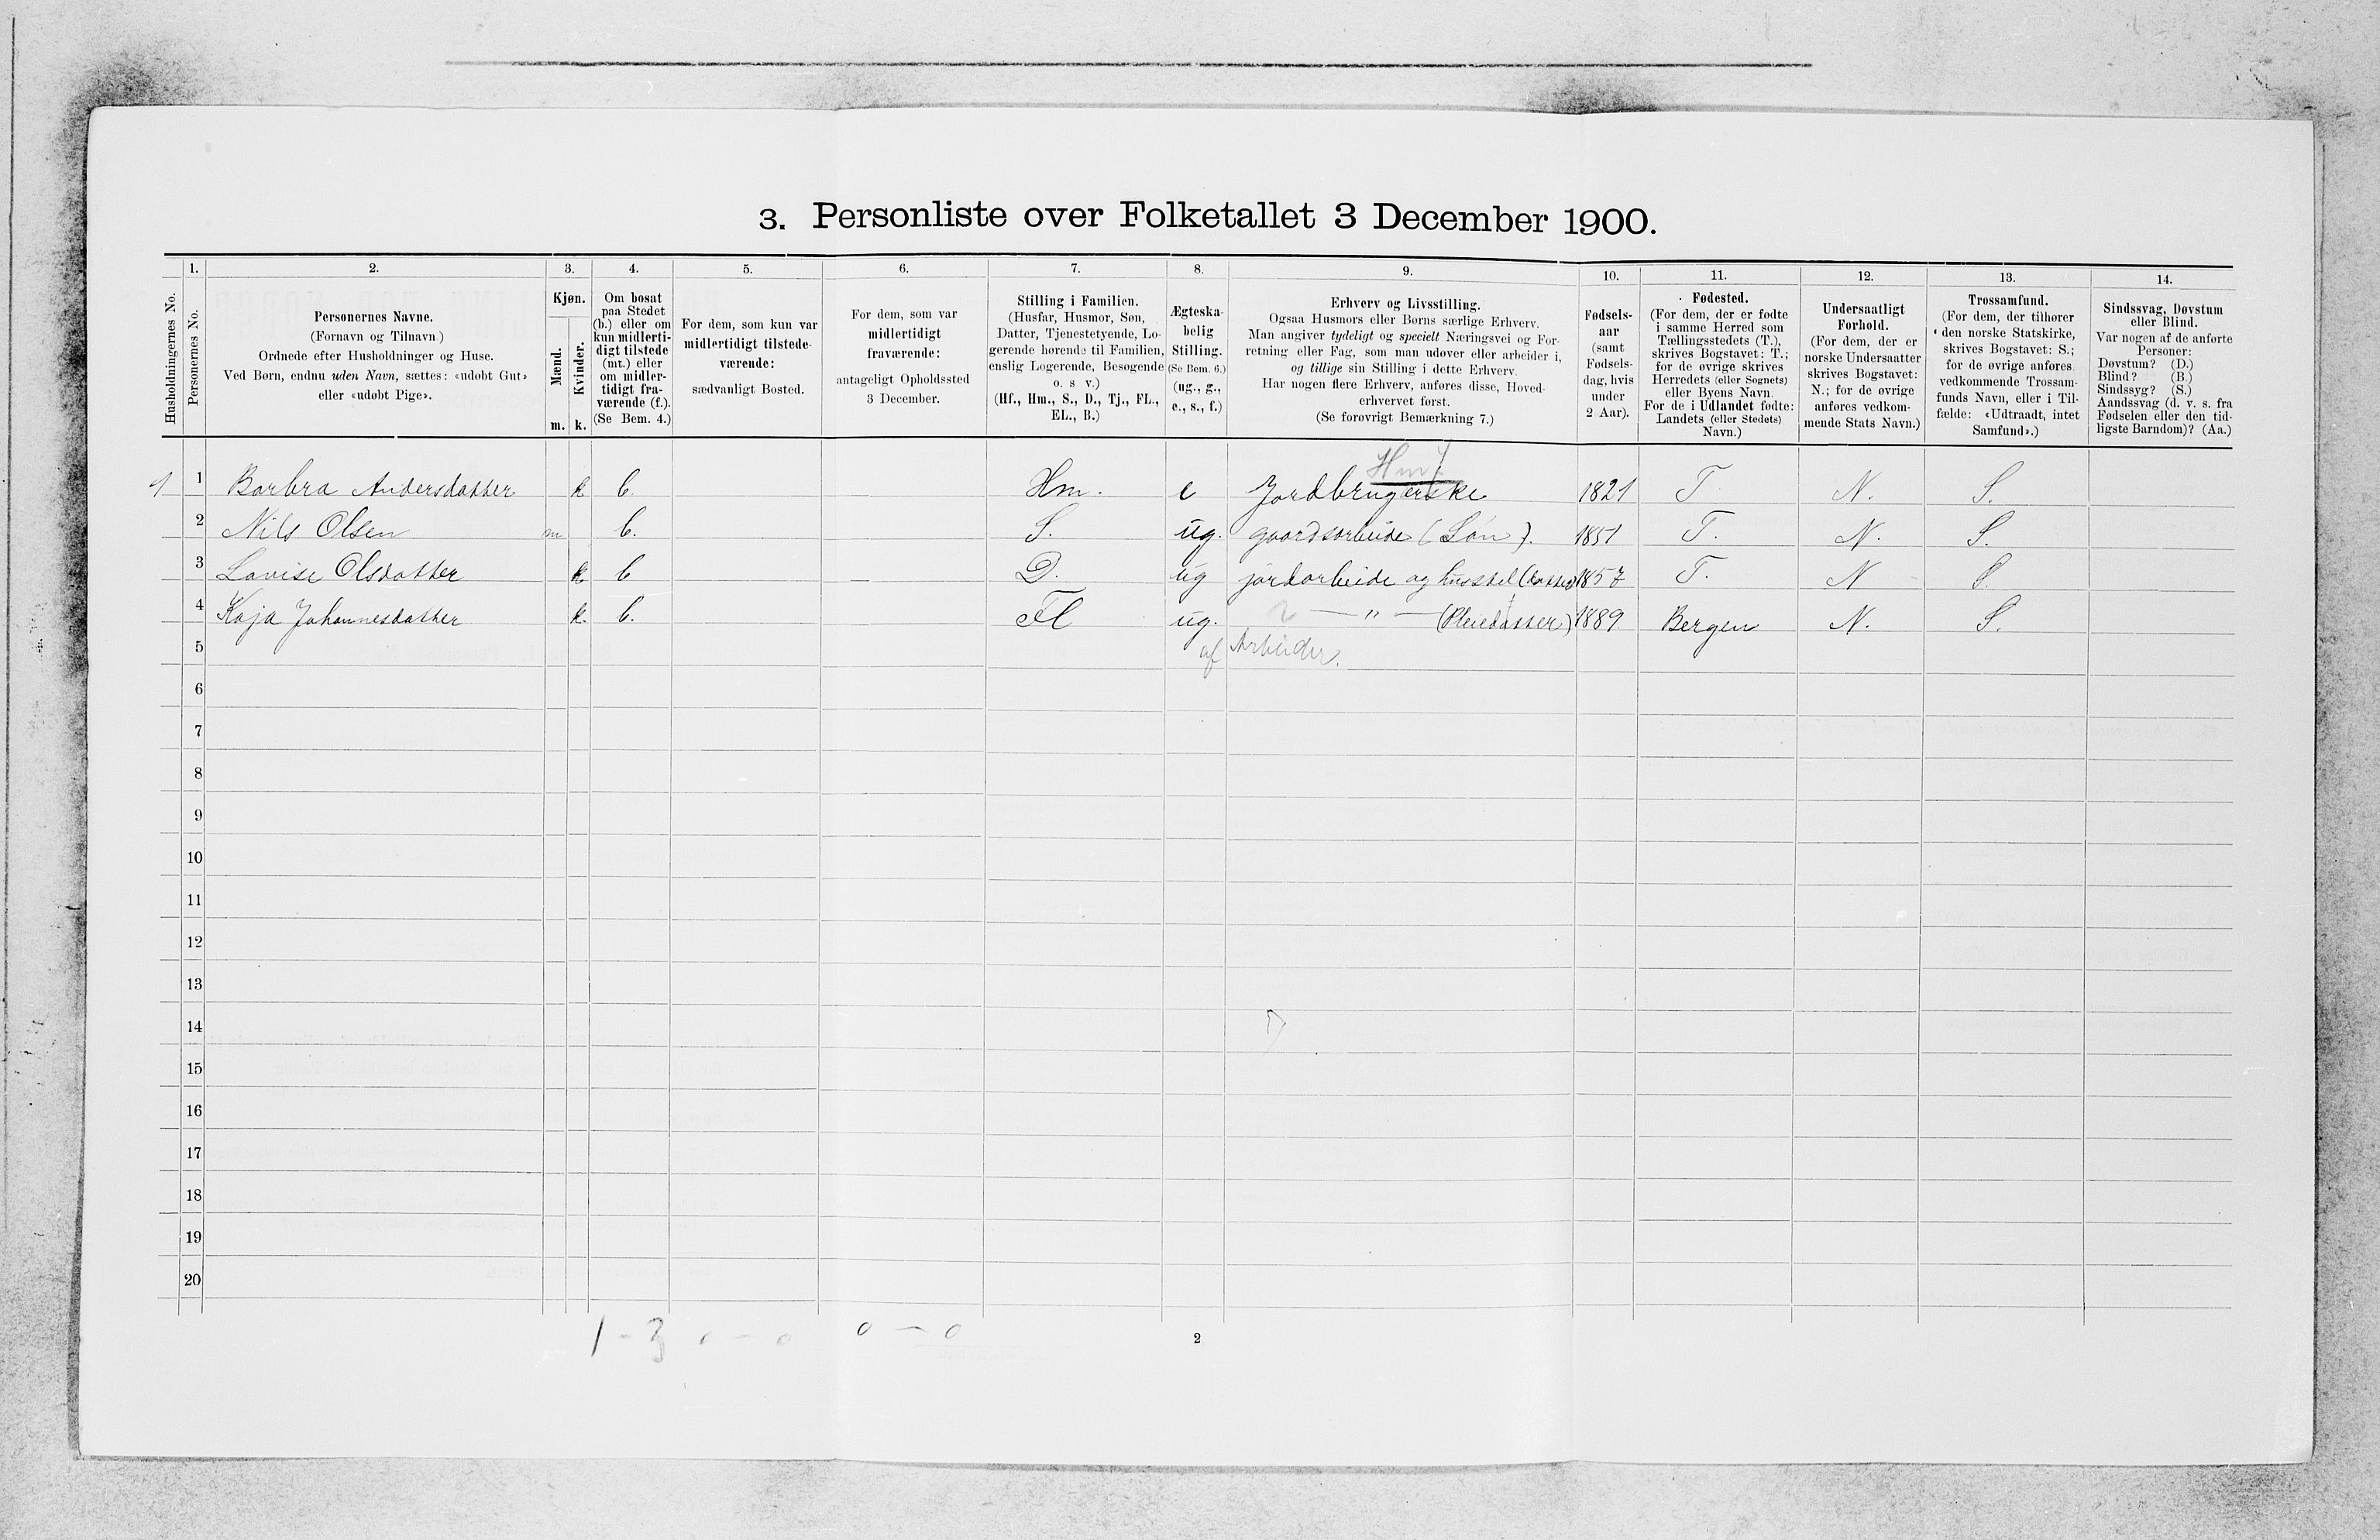 3. Personliste over Folketallet 3 December 1900.
1. 2. 3. 4. 5. 6. 7. 8. 9. 10. 11. 12. 13. 14.
Husholdningernes No.
Personernes No.
Personernes Navne.
(Fornavn og Tilnavn)
Ordnede efter Husholdninger og Huse.
Ved Børn, endnu uden Navn, sættes: «udøbt Gut»
eller «udøbt Pige».
Kjøn.
Mænd.
Kvinder.
m. k.
Om bosat
paa Stedet
(b.) eller om
kun midlerti-
digt tilstede
(mt.) eller
om midler-
tidigt fra-
værende (f.).
(Se Bem. 4.)
For dem, som kun var
midlertidigt tilstede-
værende:
sædvanligt Bosted.
For dem, som var
midlertidigt
fraværende:
antageligt Opholdssted
3 December.
Stilling i Familien.
(Husfar, Husmor, Søn,
Datter, Tjenestetyende, Lo-
gerende hørende til Familien,
enslig Logerende, Besøgende
o. s v.)
(Hf., Hm., S., D., Tj., FL.,
EL., B.)
Ægteska-
belig
Stilling.
(Se Bem. 6.)
(ug., g.,
e., s., f.)
Erhverv og Livsstilling.
Ogsaa Husmors eller Børns særlige Erhverv.
Man angiver tydeligt og specielt Næringsvei og For-
retning eller Fag, som man udøver eller arbeider i,
og tillige sin Stilling i dette Erhverv.
Har nogen flere Erhverv, anføres disse, Hoved-
erhvervet først.
(Se forøvrigt Bemærkning 7.)
Fødsels-
aar
(samt
Fødsels-
dag, hvis
under
2 Aar).
Fødested.
(For dem, der er fødte
i samme Herred som
Tællingsstedets (T.),
skrives Bogstavet: T.;
for de øvrige skrives
Herredets (eller Sognets)
eller Byens Navn.
For de i Udlandet fødte:
Landets (eller Stedets)
Navn.)
Undersaatligt
Forhold.
(For dem, der er
norske Undersaatter
skrives Bogstavet:
N.; for de øvrige
anføres vedkom-
mende Stats Navn.)
Trossamfund.
(For dem, der tilhører
den norske Statskirke,
skrives Bogstavet: S.;
for de øvrige anføres
vedkommende Trossam-
funds Navn, eller i Til-
fælde: «Udtraadt, intet
Samfund».)
Sindssvag, Døvstum
eller Blind.
Var nogen af de anførte
Personer:
Døvstum? (D.)
Blind? (B.)
Sindssyg? (S.)
Aandssvag (d. v. s. fra
Fødselen eller den tid-
ligste Barndom)? (Aa.)
1 1 Barbra Andersdatter k b. Hm. e Jordbrugerske 1821 T N. S.
2 Nils Olsen m b. S. ug. gaardsarbeide (Søn). 1851 T. N. S.
3 Lovise Olsdatter k b — D. ug jordarbeide og husstel (datter) 1857 T. N S.
4 Kaja Johannesdatter k. b. Fl ug. — " — (Pleiedatter) 1889 Bergen N. S.
5 af Arbeider.
6
7
8
9
10
11
12
13
14
15
16
17
18
19
20
1 - 3 0 - 0 0 - 0
2